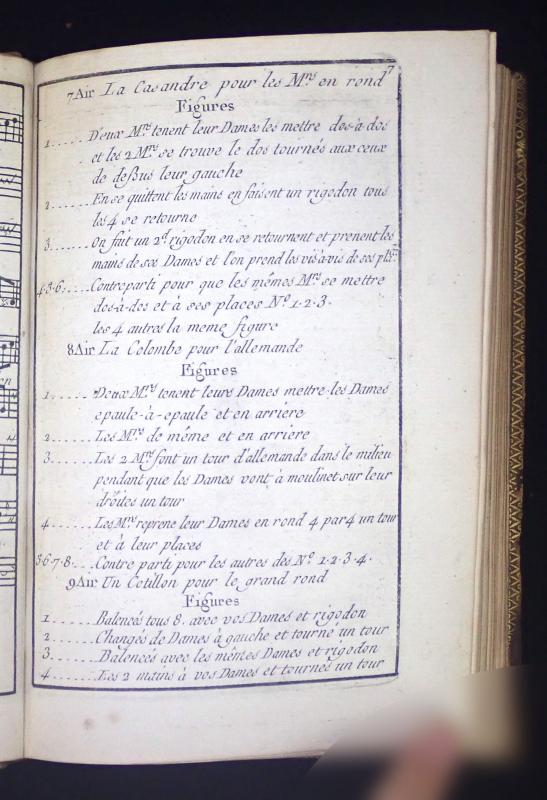 7
7 Air La Casandre pour les Mrs en rond
Figures
1..... Deux Mrs tenent leur Dames les mettre dos-à-dos
et les 2 Mrs se trouve le dos tournés aux ceux
de deßus leur gauche
2...... En se quittent les mains en faisent un rigodon tous
les 4 se retourne
3...... On fait un 2d rigodon en se retournent et prenent les
mains de ses Dames et l'on prend les vis-à-vis de ses pls.
4·5·6:.... Contreparti pour que les mêmes Mrs se mettre
dos-à-dos et à ses places No. 1·2·3.
les 4 autres la meme figure
8 Air La Colombe pour l'allemande
Figures
1...... Deux Mrs tenent leurs Dames mettre les Dames
epaule-à-epaule et en arriere
2...... Les Mrs de même et en arriere
3...... Les 2 Mrs font un tour d'allemande dans le milieu
pendant que les Dames vont à moulinet sur leur
droites un tour
4...... Les Mrs reprene leur Dames en rond 4 par 4 un tour
et à leur places
5·6·7·8... Contre parti pour les autres des No. 1·2·3·4.
9 Air Un Cotillon pour le grand rond
Figures
1...... Balencés tous 8. avec vos Dames et rigodon
2...... Changés de Dames à gauche et tourné un tour
3...... Balencés avec les mêmes Dames et rigodon
4...... Les 2 mains à vos Dames et tournés un tour